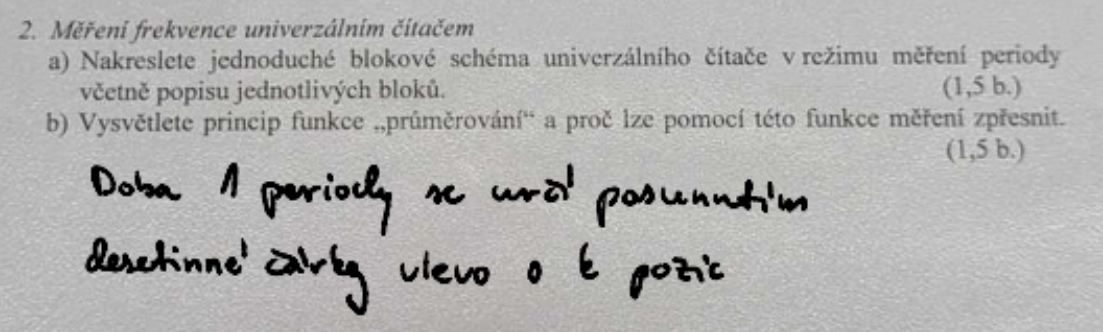 2. Měření frekvence univerzálním čítačem
a) Nakreslete jednoduché blokové schéma univerzálního čítače v režimu měření periody
včetně popisu jednotlivých bloků. (1,5 b.)
b) Vysvětlete princip funkce „průměrování“ a proč lze pomocí této funkce měření zpřesnit.
(1,5 b.)
Doba 1 periody se určí posunutím
desetinné čárky vlevo o k pozic